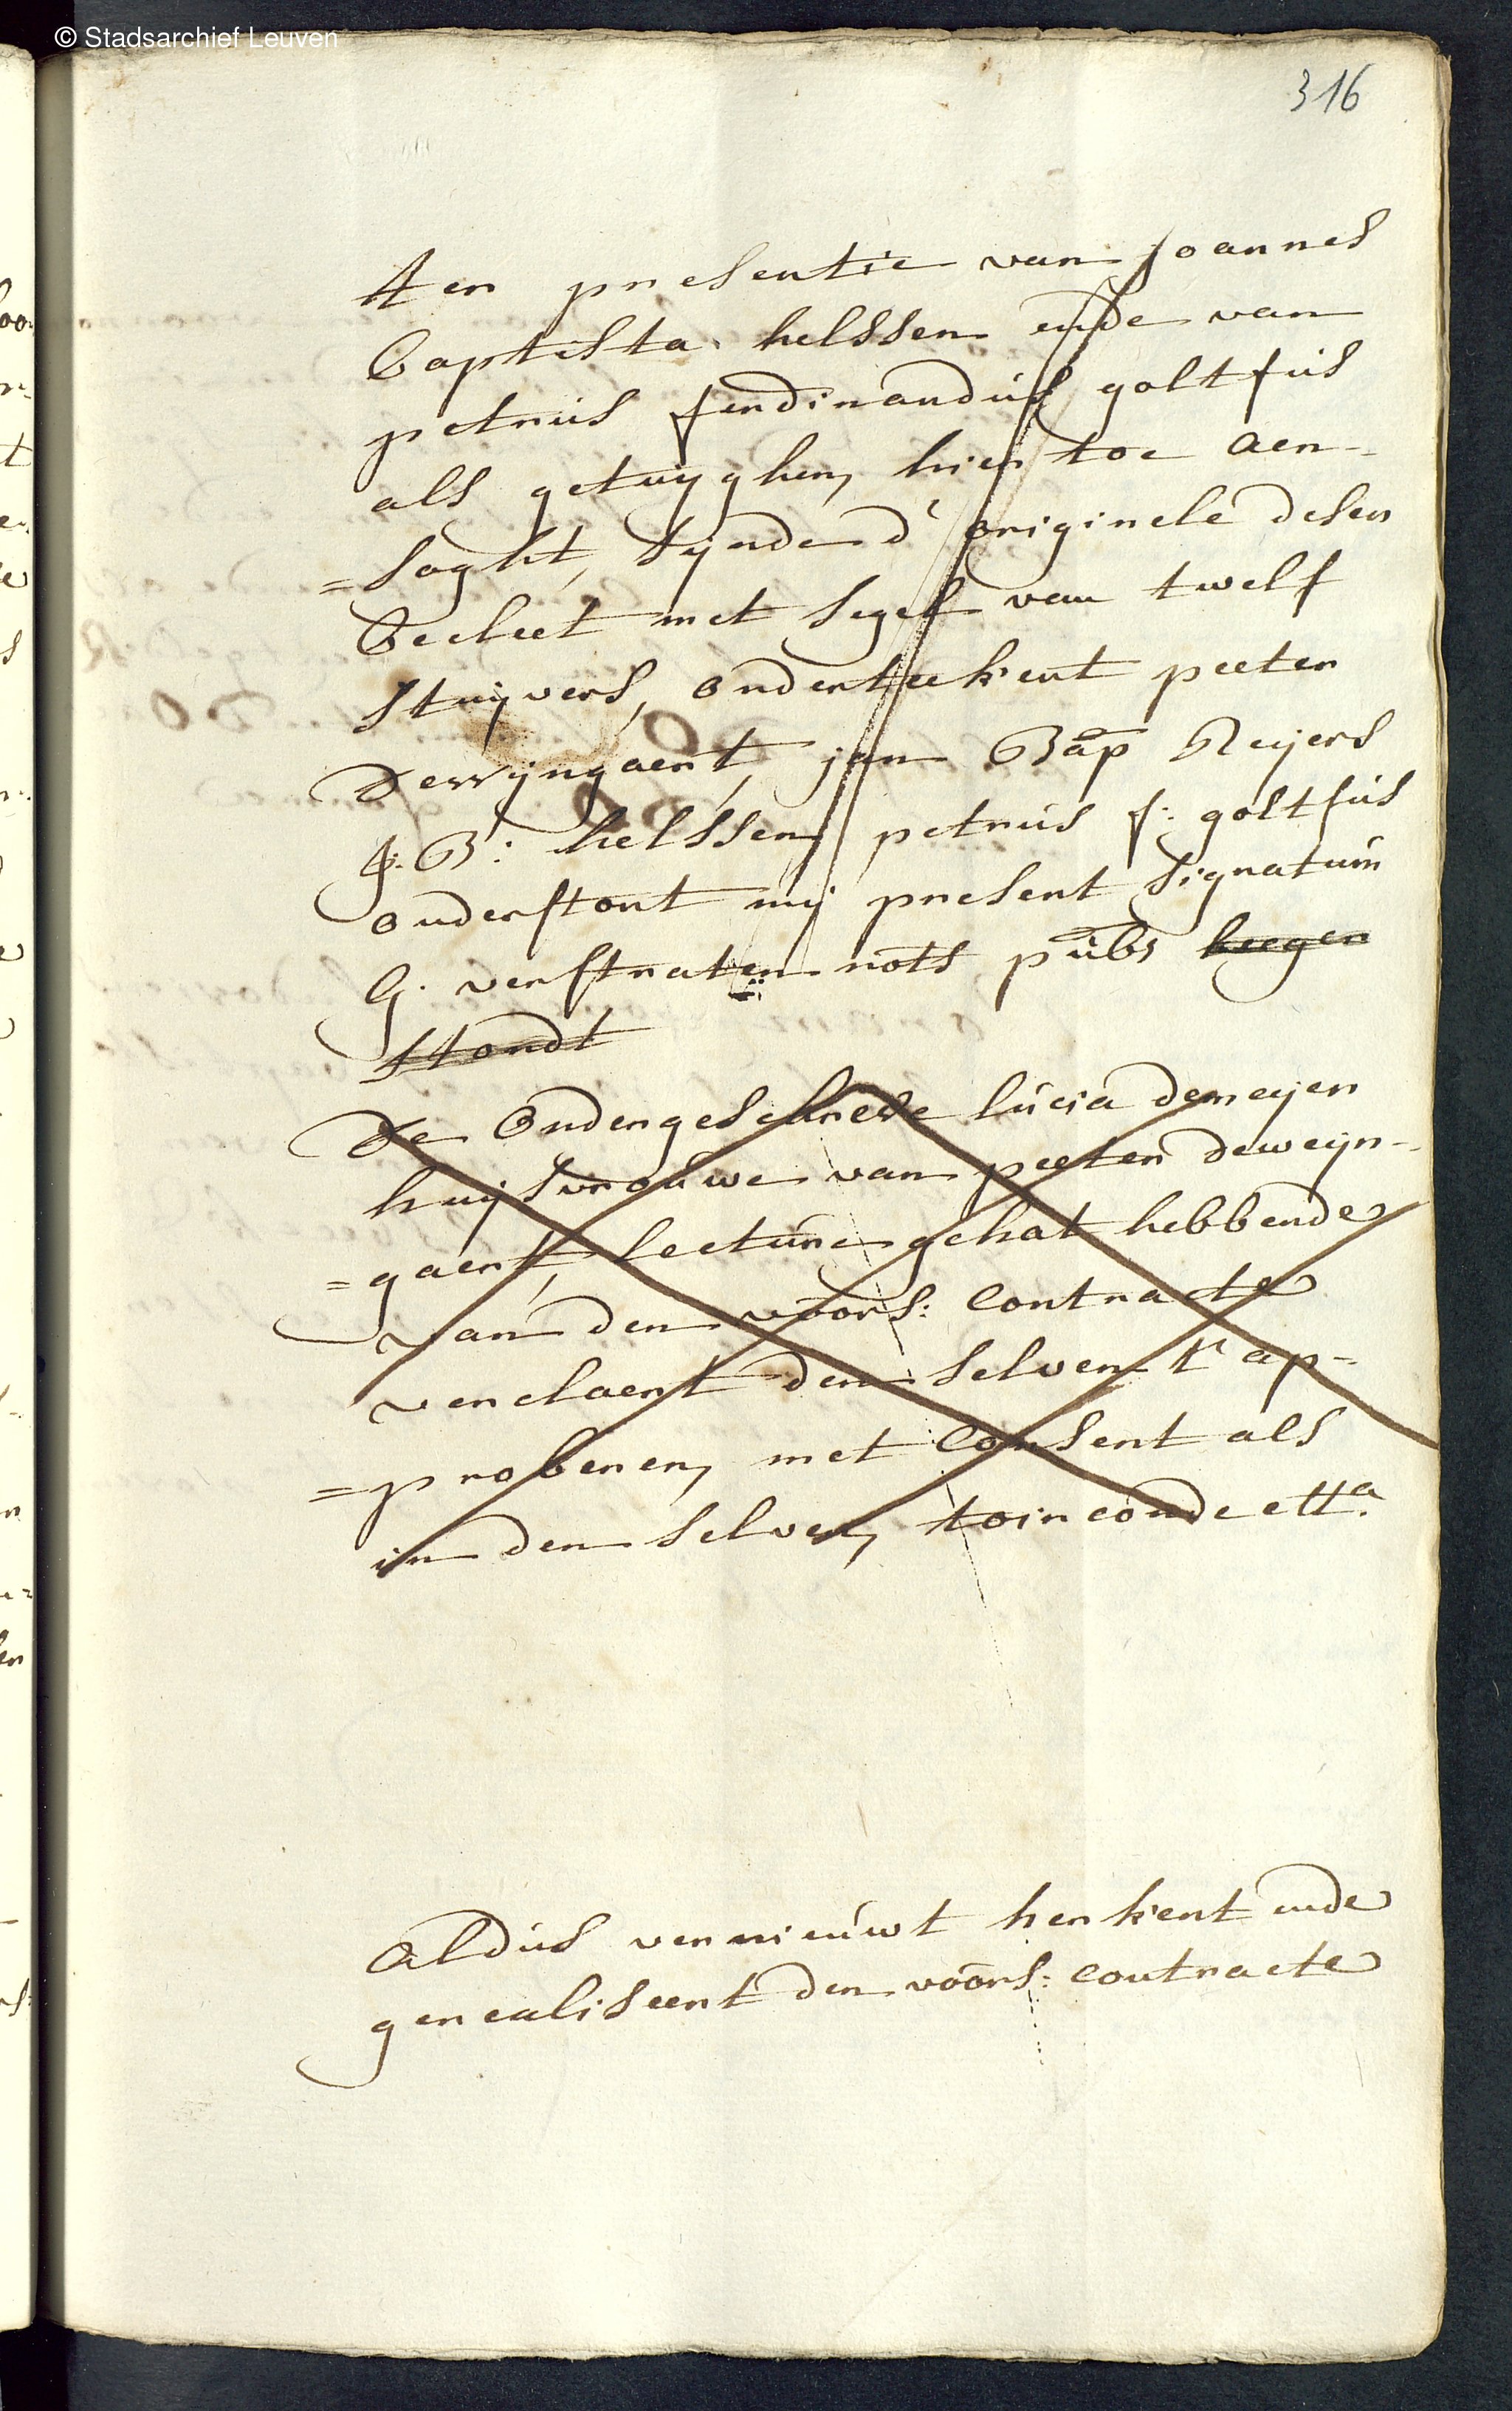 © Stadsarchief Leuven
316
ter presentie van Joannes
baptista helssen ende van
petrus ferdinandus goltfus
als getuyghen, hier toe aen-
=soght, sijnde d' originele desen
becleet met segel van twelf
stuyvers, onderteekent peeter
dewyngaert, jan Bap Reyers
J: B: helssen petrus f: goltfus
onderstont mij present signatum
G. verstraten nots pubs leegen
stondt
De ondergeschreve lucia demeyer
huysvrouwe van peeter deweyn-
=gaert, lecture gehat hebbende
van den voors: contracte
verclaert den selven t' ap-
=proberen, met consent als
in den selven, toirconde etta.
Aldus vernieuwt herkent ende
gerealiseert den voors: contracte